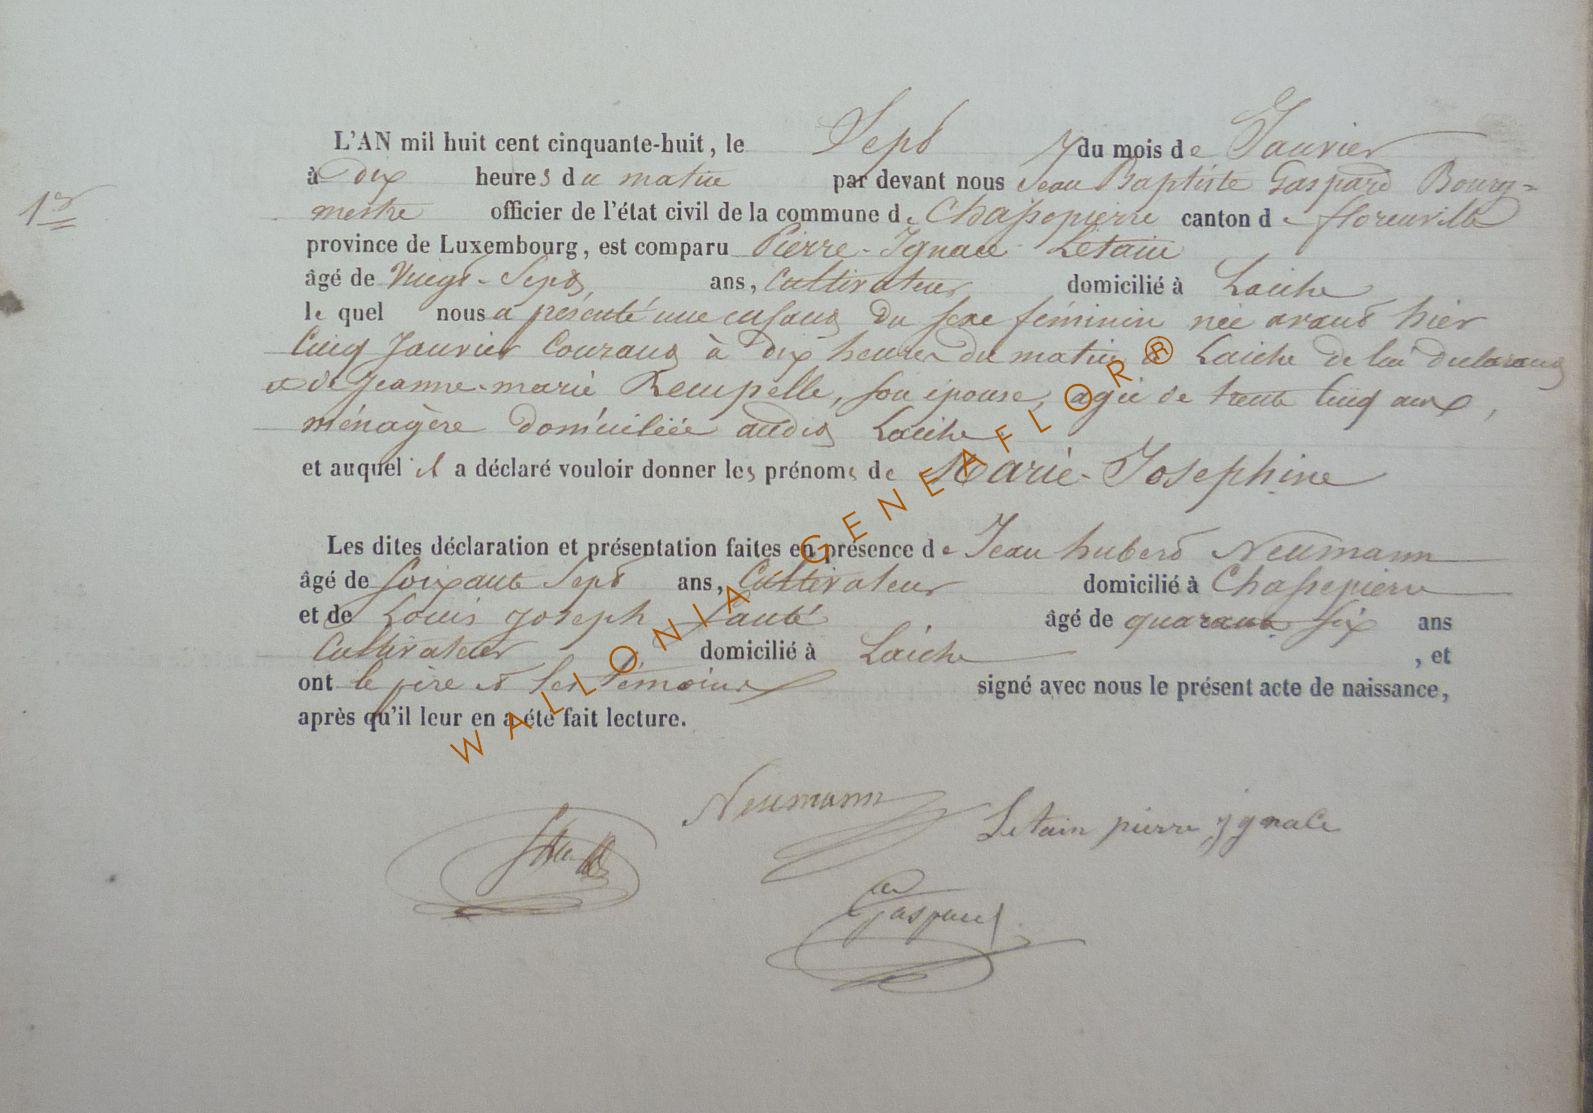 L'AN mil huit cent cinquante-huit, le Sept du mois de Janvier
à dix heures du matin par devant nous Jean Baptiste Gaspard Bourg-
1er
mestre officier de l'état civil de la commune de Chassepierre canton de florenville
province de Luxembourg, est comparu Pierre-Ignace Letain
âgé de Vingt-Sept ans, Cultivateur domicilié à Laiche
le quel nous a présenté une enfant du sexe féminin née avant hier
Cinq Janvier Courant à dix heures du matin à Laiche de lui déclarant
et de Jeanne-marie, son épouse, agée de trente Cinq ans,
ménagère domiciliée audit Laiche
et auquel il a déclaré vouloir donner les prénoms de Marie-Josephine
Les dites déclaration et présentation faites en présence de Jean hubert Neumann
âgé de soixante Sept ans, Cultivateur domicilié à Chassepierre
et de Louis joseph âgé de quarante six ans
Cultivateur domicilié à Laiche, et
ont le père et les témoins signé avec nous le présent acte de naissance,
après qu'il leur en a été fait lecture.
Neumann
Letain pierre ignace
Gaspard
WALLONIA GENEAFLOR®